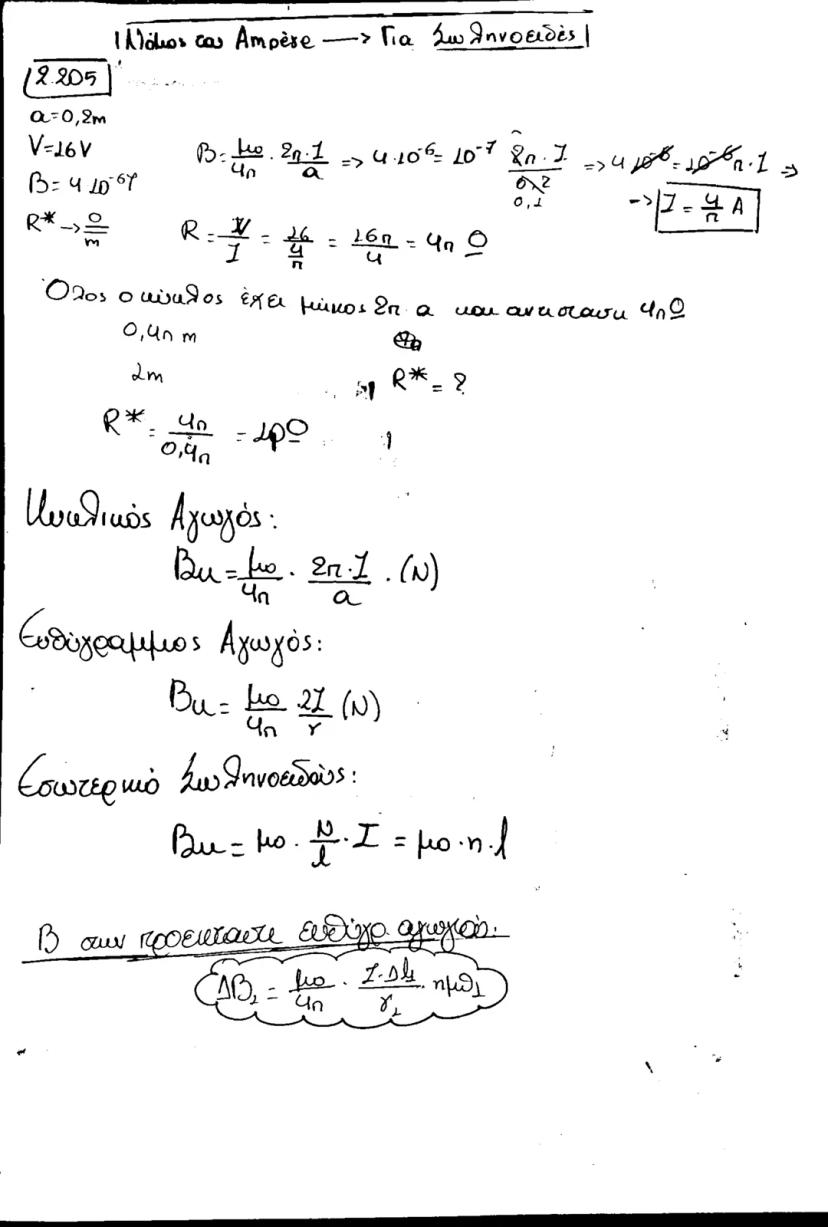 Νόμος του Ampère → Για Σωληνοειδές
2.205
a=0,2m
V=16V
B=4 10⁻⁶T
R* → Ω/m
B = μο/4π · 2π·I/a => 4·10⁻⁶ = 10⁻⁷ 2π·I/0,2 0,1 => 4 10⁻⁶ = 10⁻⁶ π·I =>
-> I = 4/π A
R = V/I = 16/(4/π) = 16π/4 = 4π Ω
Όλος ο κύκλος έχει μήκος 2π a και αντίσταση 4π Ω
0,4π m
1m R* = ?
R* = 4π/0,4π = 10 Ω
Κυκλικός Αγωγός:
Bκ = μο/4π · 2π·I/a · (N)
Ευθύγραμμος Αγωγός:
Bκ = μο/4π 2I/r (N)
Εσωτερικό Σωληνοειδούς:
Bκ = μο · N/l · I = μο·n·l
B στην προέκταση ευθύγρ. αγωγού:
ΔB₁ = μο/4π · I·Δl₁/r₁ · ημθ₁